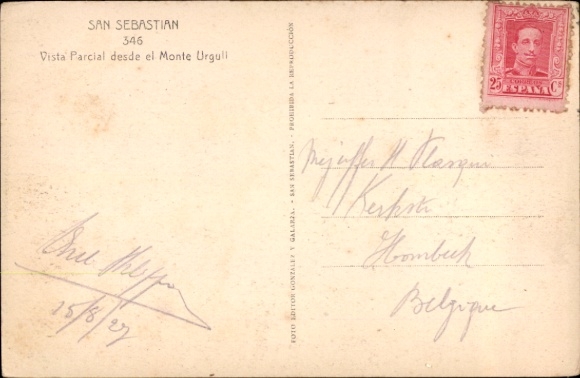 SAN SEBASTIAN
346
Vista Parcial desde el Monte Urgull
FOTO EDITOR GONZALEZ Y GALARZA. - SAN SEBASTIAN. - PROHIBIDA LA REPRODUCCIÓN
25 Cs
ESPAÑA
H
Hombeek
Belgique
15/8/27